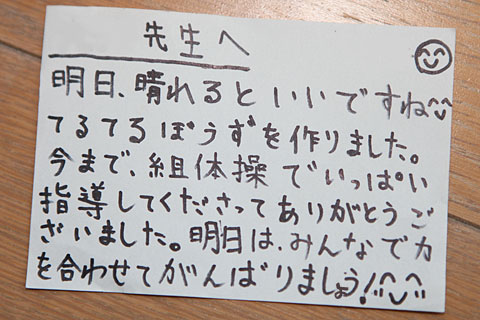 先生へ
明日、晴れるといいですね^^
てるてるぼうずを作りました。
今まで、組体操でいっぱい
指導してくださってありがとうご
ざいました。明日は、みんなで力
を合わせてがんばりましょう!!^^